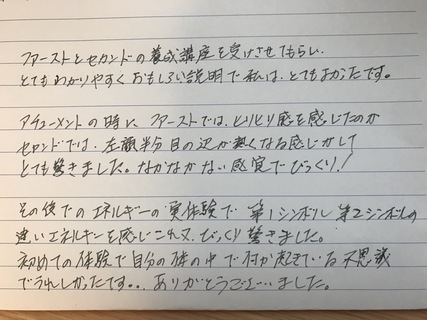 ファーストとセカンドの養成講座を受けさせてもらい、
とてもわかりやすくおもしろい説明で私は、とてもよかったです。
アチューメントの時に、ファーストでは、とりとり感を感じたのが
セカンドでは、左顔半分目の辺が熱くなる感じがして
とても驚きました。なかなかない感覚でびっくり!
その後でのエネルギーの実体験で 第1シンボル 第2シンボルの
違いエネルギーを感じこれ又、びっくり驚きました。
初めての体験で自分の体の中で何が起きている不思議
でうれしかったです... ありがとうございました。